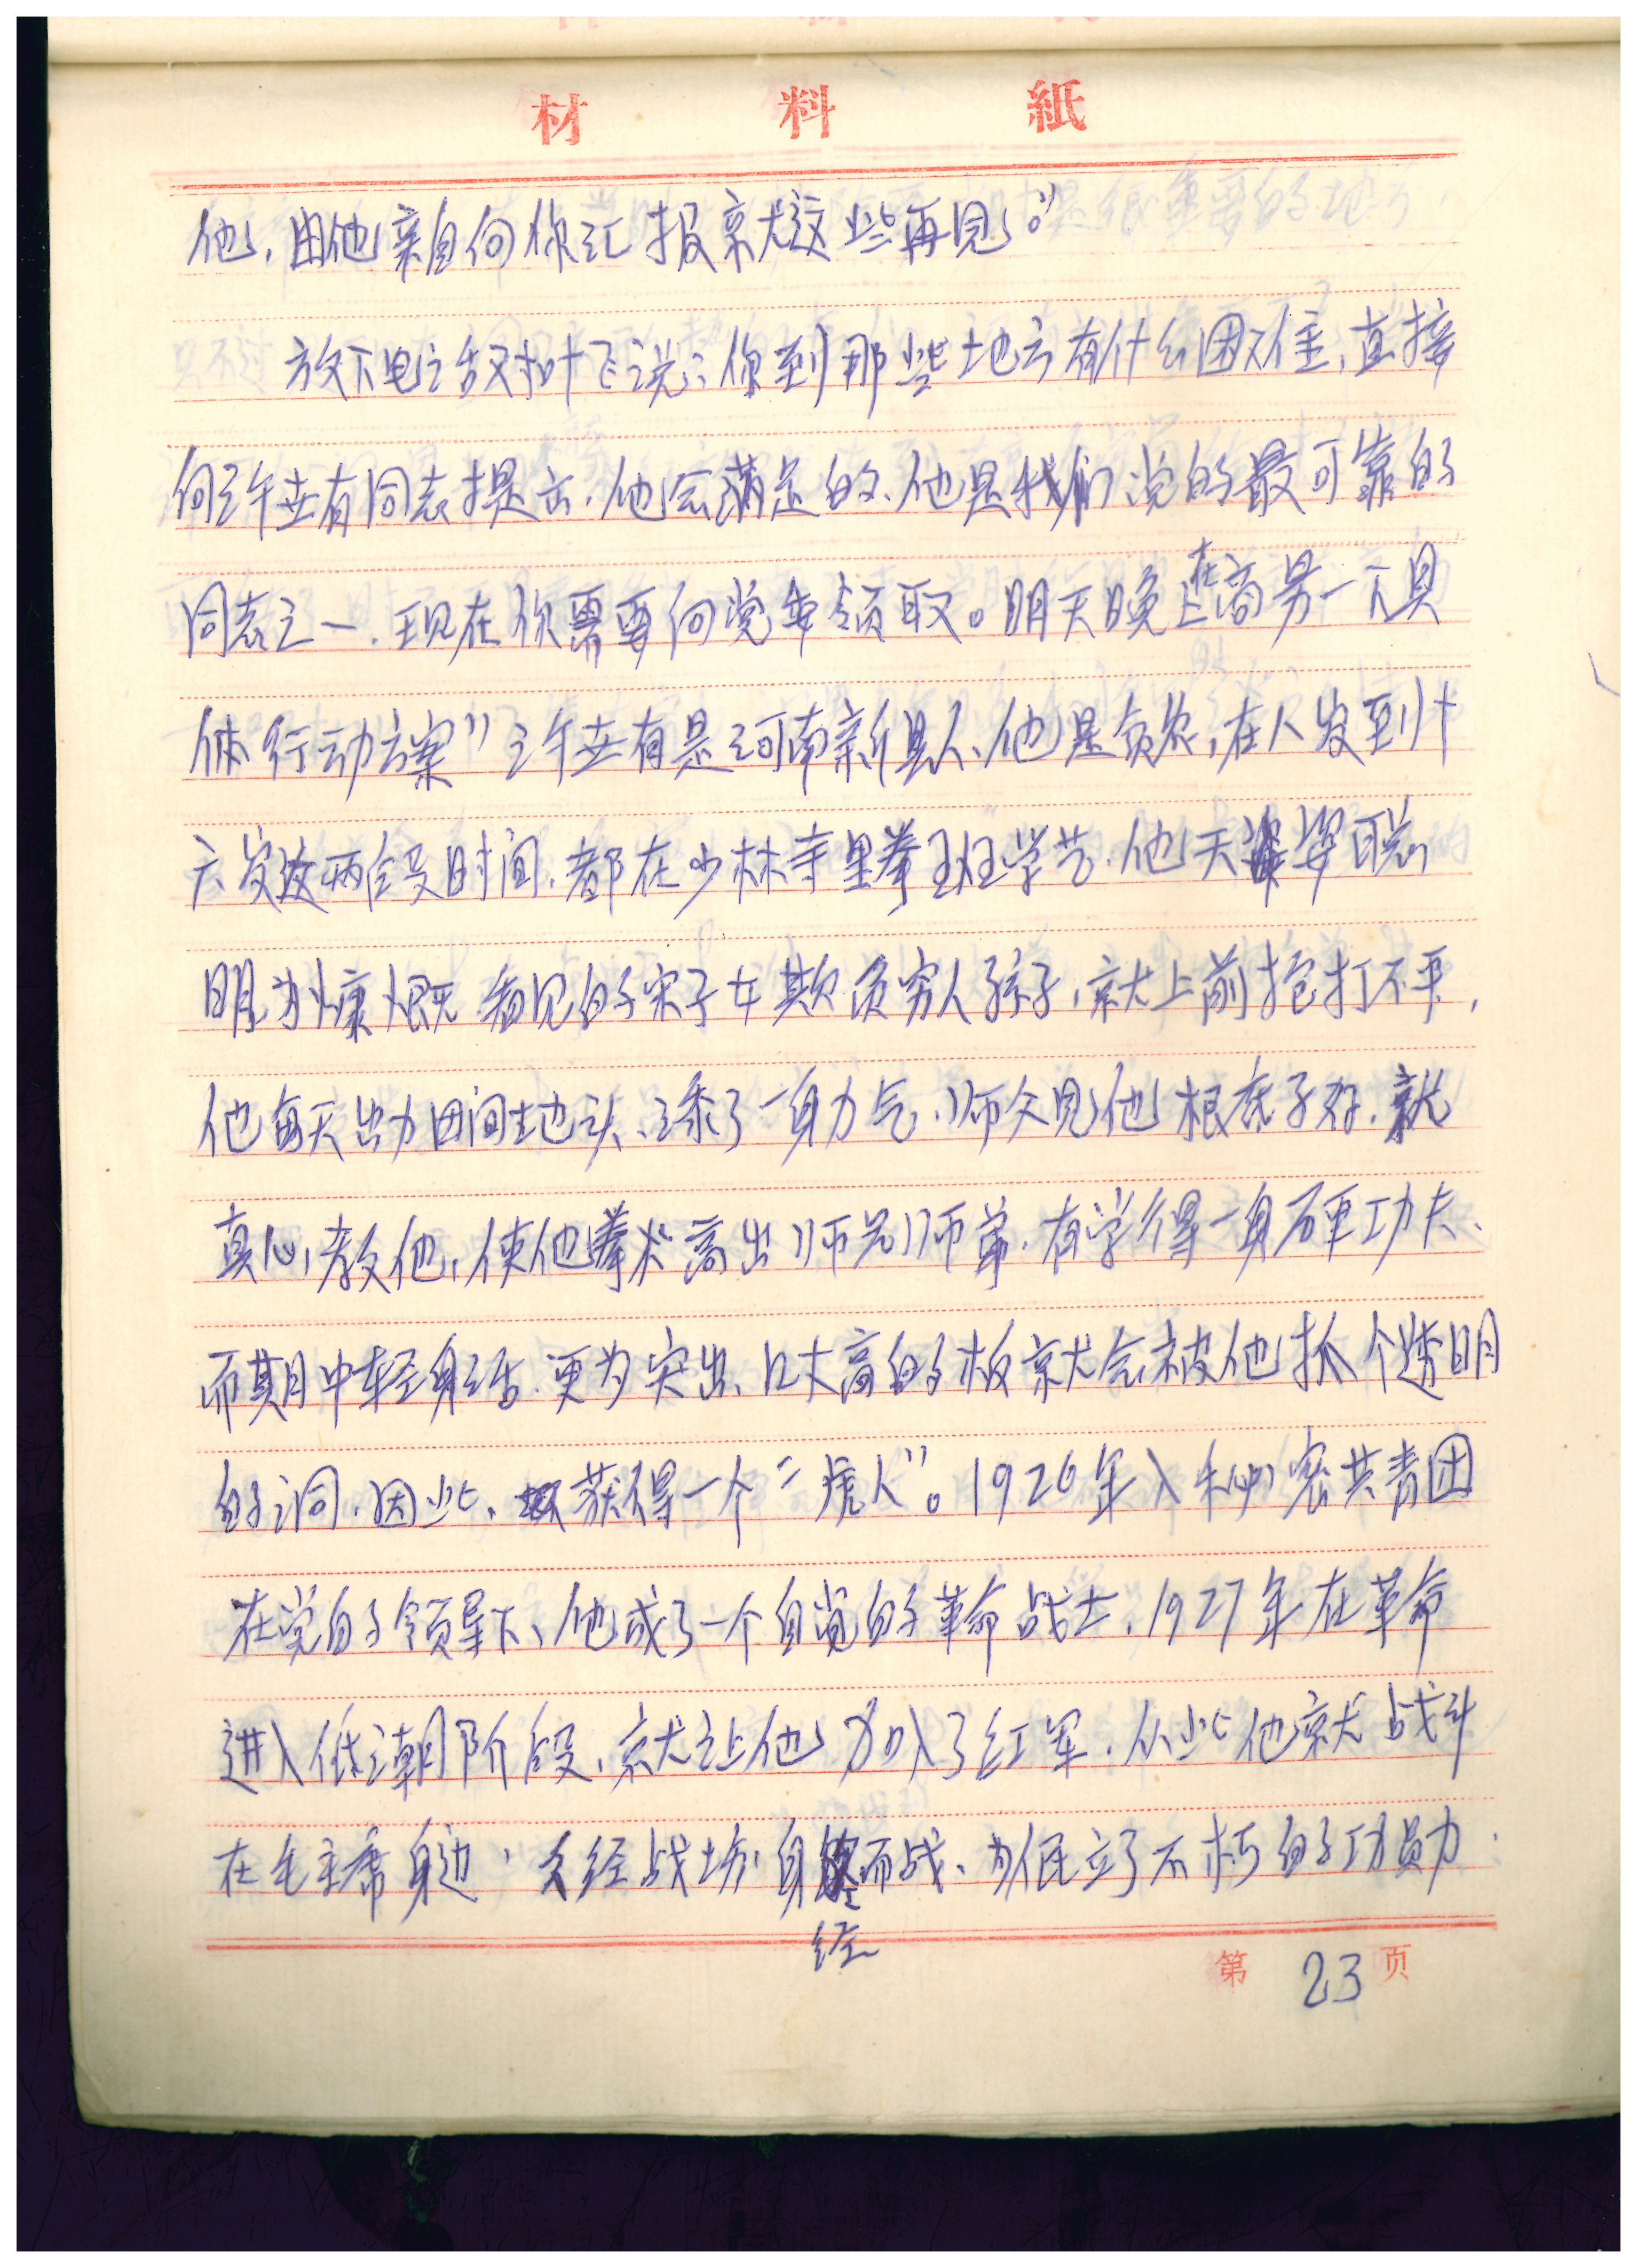 材料紙
他，由他亲自向你汇报就这些再见。”
放下电话又对叶飞说：你到那些地方有什么困难，直接
向许世有同志提出，他会满足的、他是我们党的最可靠的
同志之一．现在你需要向党委领取。明天晚上在商另一个具
体行动方案”许世有是河南新县人、他是贫农，在八岁到十
六岁这两段时间，都在少林寺里拳班学艺．他天姿聪
明为慷慨．看见的家子女欺负穷人孩子，就上前抱打不平，
他每天出力田间地头、练了一身力气，师父见他根底子好．就
真心教他，使他拳术高出师兄师弟．有学得一身硬功夫、
而期中轻身活．更为突出、几丈高的板就会被他抓个透明
的洞．因此、获得一个“虎人”。1926年入秘密共青团
在党的领导下、他成了一个自觉的革命战士．1927年在革命
进入低潮阶段，就让他加入了红军．从此他就战斗
在毛主席身边，久经战场，身经而战、为人民立了不朽的功勋
第23页